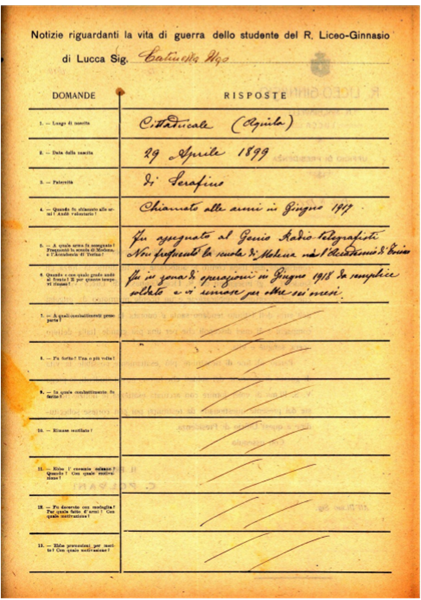 Notizie riguardanti la vita di guerra dello studente del R. Liceo-Ginnasio
di Lucca Sig. Ugo
DOMANDE RISPOSTE
1. — Luogo di nascita Cittaducale (Aquila)
2. — Data della nascita 29 Aprile 1899
3. — Paternità di Serafino
4. — Quando fu chiamato alle armi? Andò volontario? Chiamato alle armi in Giugno 1917
5. — A quale arma fu assegnato? Frequentò la scuola di Modena, o l'Accademia di Torino? Fu assegnato al Genio Radio-telegrafisti
Non frequentò la scuola di Modena nè l'Accademia di Torino
6. — Quando e con quale grado andò al fronte? E per quanto tempo vi rimase? Fu in zona di operazioni in Giugno 1918 da semplice
soldato e vi rimase per oltre sei mesi.
7. — A quali combattimenti prese parte?
8. — Fu ferito? Una o più volte?
9. — In quale combattimento fu ferito?
10. — Rimase mutilato?
11. — Ebbe l'encomio solenne? Quando? Con quale motivazione?
12. — Fu decorato con medaglia? Per quale fatto d'armi? Con quale motivazione?
13. — Ebbe promozioni per merito? Con quale motivazione?